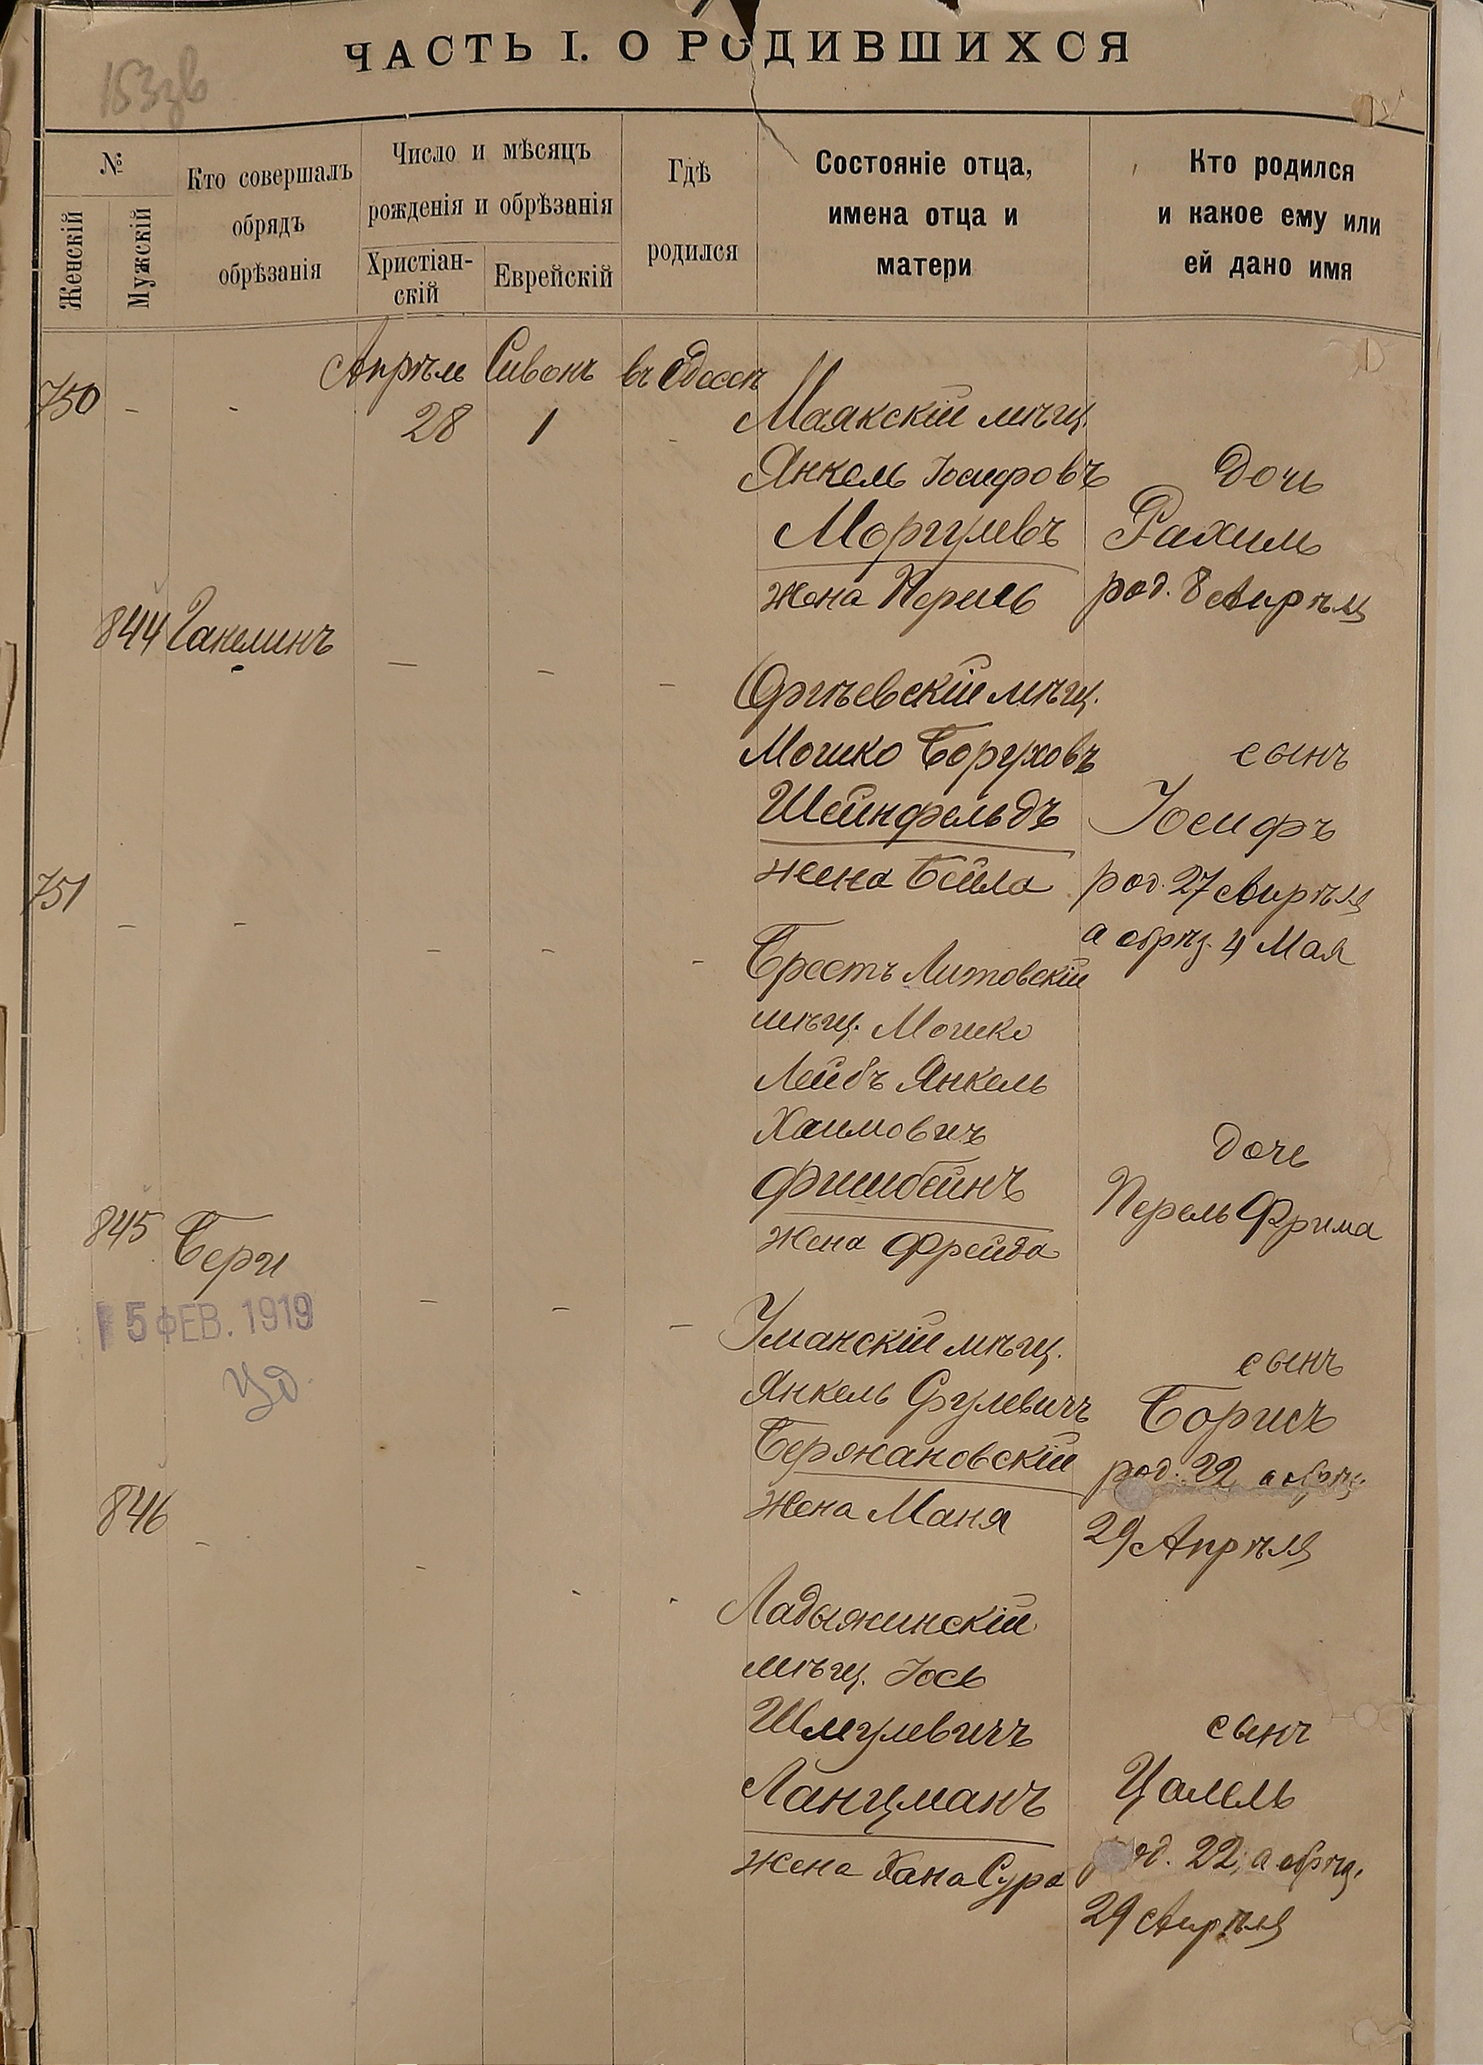 153зв
ЧАСТЬ I. О РОДИВШИХСЯ
№
Женскій
Мужскій
Кто совершалъ
обрядъ
обрѣзанія
Число и мѣсяцъ
рожденія и обрѣзанія
Христіан-
скій
Еврейскій
Гдѣ
родился
Состояніе отца,
имена отца и
матери
Кто родился
и какое ему или
ей дано имя
Апрѣль Сивонъ въ Одессѣ
750 - - 28 1 -
Маякскій мѣщ.
Янкель Іосифовъ
Моргулевъ
жена Перль
Дочь
Рахиль
род. 8 Апрѣля
844 -
Оргѣевскій мѣщ.
Мошко Боруховъ
Шейнфельдъ
жена Бейла
сынъ
Іосифъ
род. 27 Апрѣля
а обрѣз. 4 Мая
751 - - - - -
Брестъ Литовскій
мѣщ. Мошко
Лейбъ Янкель
Хаимовичъ
Фишбейнъ
жена Фрейда
дочь
Перель Фрима
845 Берги - - -
5 ФЕВ. 1919
Уманскій мѣщ.
Янкель Срулевичъ
Бержановскій
жена Маня
сынъ
Борисъ
род. 22 а обрѣз.
29 Апрѣля
846 - - - -
Ладыжинскій
мѣщ. Іось
Шмулевичъ
Ланцманъ
жена Хана Сура
сынъ
Цалель
род. 22, а обрѣз.
29 Апрѣля